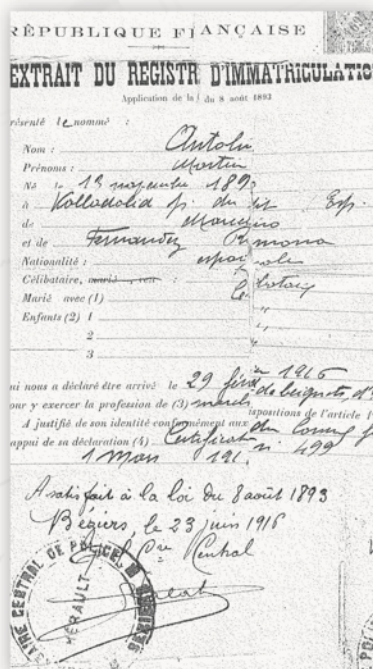 RÉPUBLIQUE FRANÇAISE
EXTRAIT DU REGISTR D'IMMATRICULATIO
Application de la du 8 août 1893
résenté le nommé :
Nom : Antolin
Prénoms : Martin
Né le 13 novembre 189
à Valladolid p. du dit Esp.
de
et de Fernandez Ramona
Nationalité : espagnole
Célibataire, marié, veu :
Marié avec (1)
Enfants (2) 1 "
2 "
3 "
ui nous a déclaré être arrivé le 29 1916
our y exercer la profession de (3) march de beignets, d'
A justifié de son identité conformément aux ispositions de l'article 1
appui de sa déclaration (4) Certificat du
1 Mars 191. n° 499
A satisfait à la loi du 8 août 1893
Béziers, le 23 juin 1916
Le Cre Central
AIRE CENTRAL DE POLICE
HÉRAULT
BÉZIERS